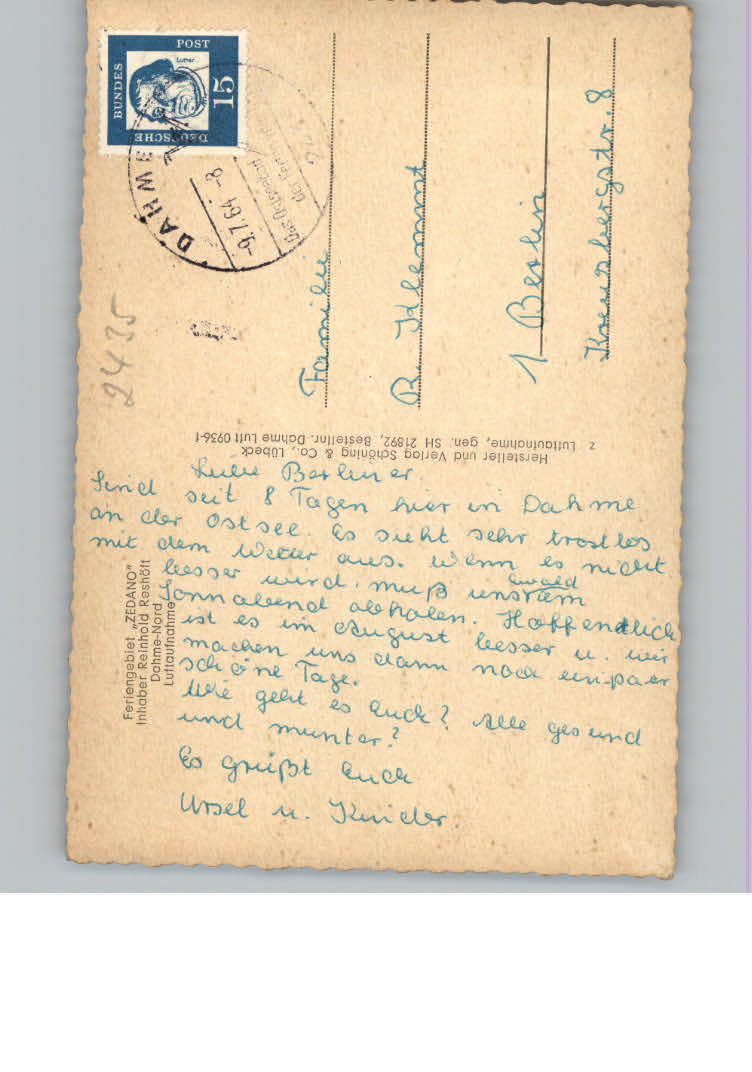 DEUTSCHE
BUNDES
POST
15
Luther
DAHME
-9.7.64 -8
Das Ostseebad
2435
Familie
B. Klemmt
1 Berlin
Kreuzbergstr. 8
Hersteller und Verlag Schöning & Co., Lübeck
z Luftaufnahme, gen. SH 21892, Bestellnr. Dahme Luft 0936-f
Feriengebiet „ZEDANO"
Inhaber Reinhold Reshöft
Dahme-Nord
Luftaufnahme
Liebe Berliner
Sind seit 8 Tagen hier in Dahme
an der Ostsee. Es sieht sehr trostlos
mit dem Wetter aus. Wenn es nicht
besser wird, muß uns Ewald am
Sonnabend abholen. Hoffendlich
ist es im August besser u. wir
machen uns dann noch ein paar
schöne Tage.
Wie geht es Euch? Alle gesund
und munter?
Es grüßt Euch
Ursel u. Kinder.